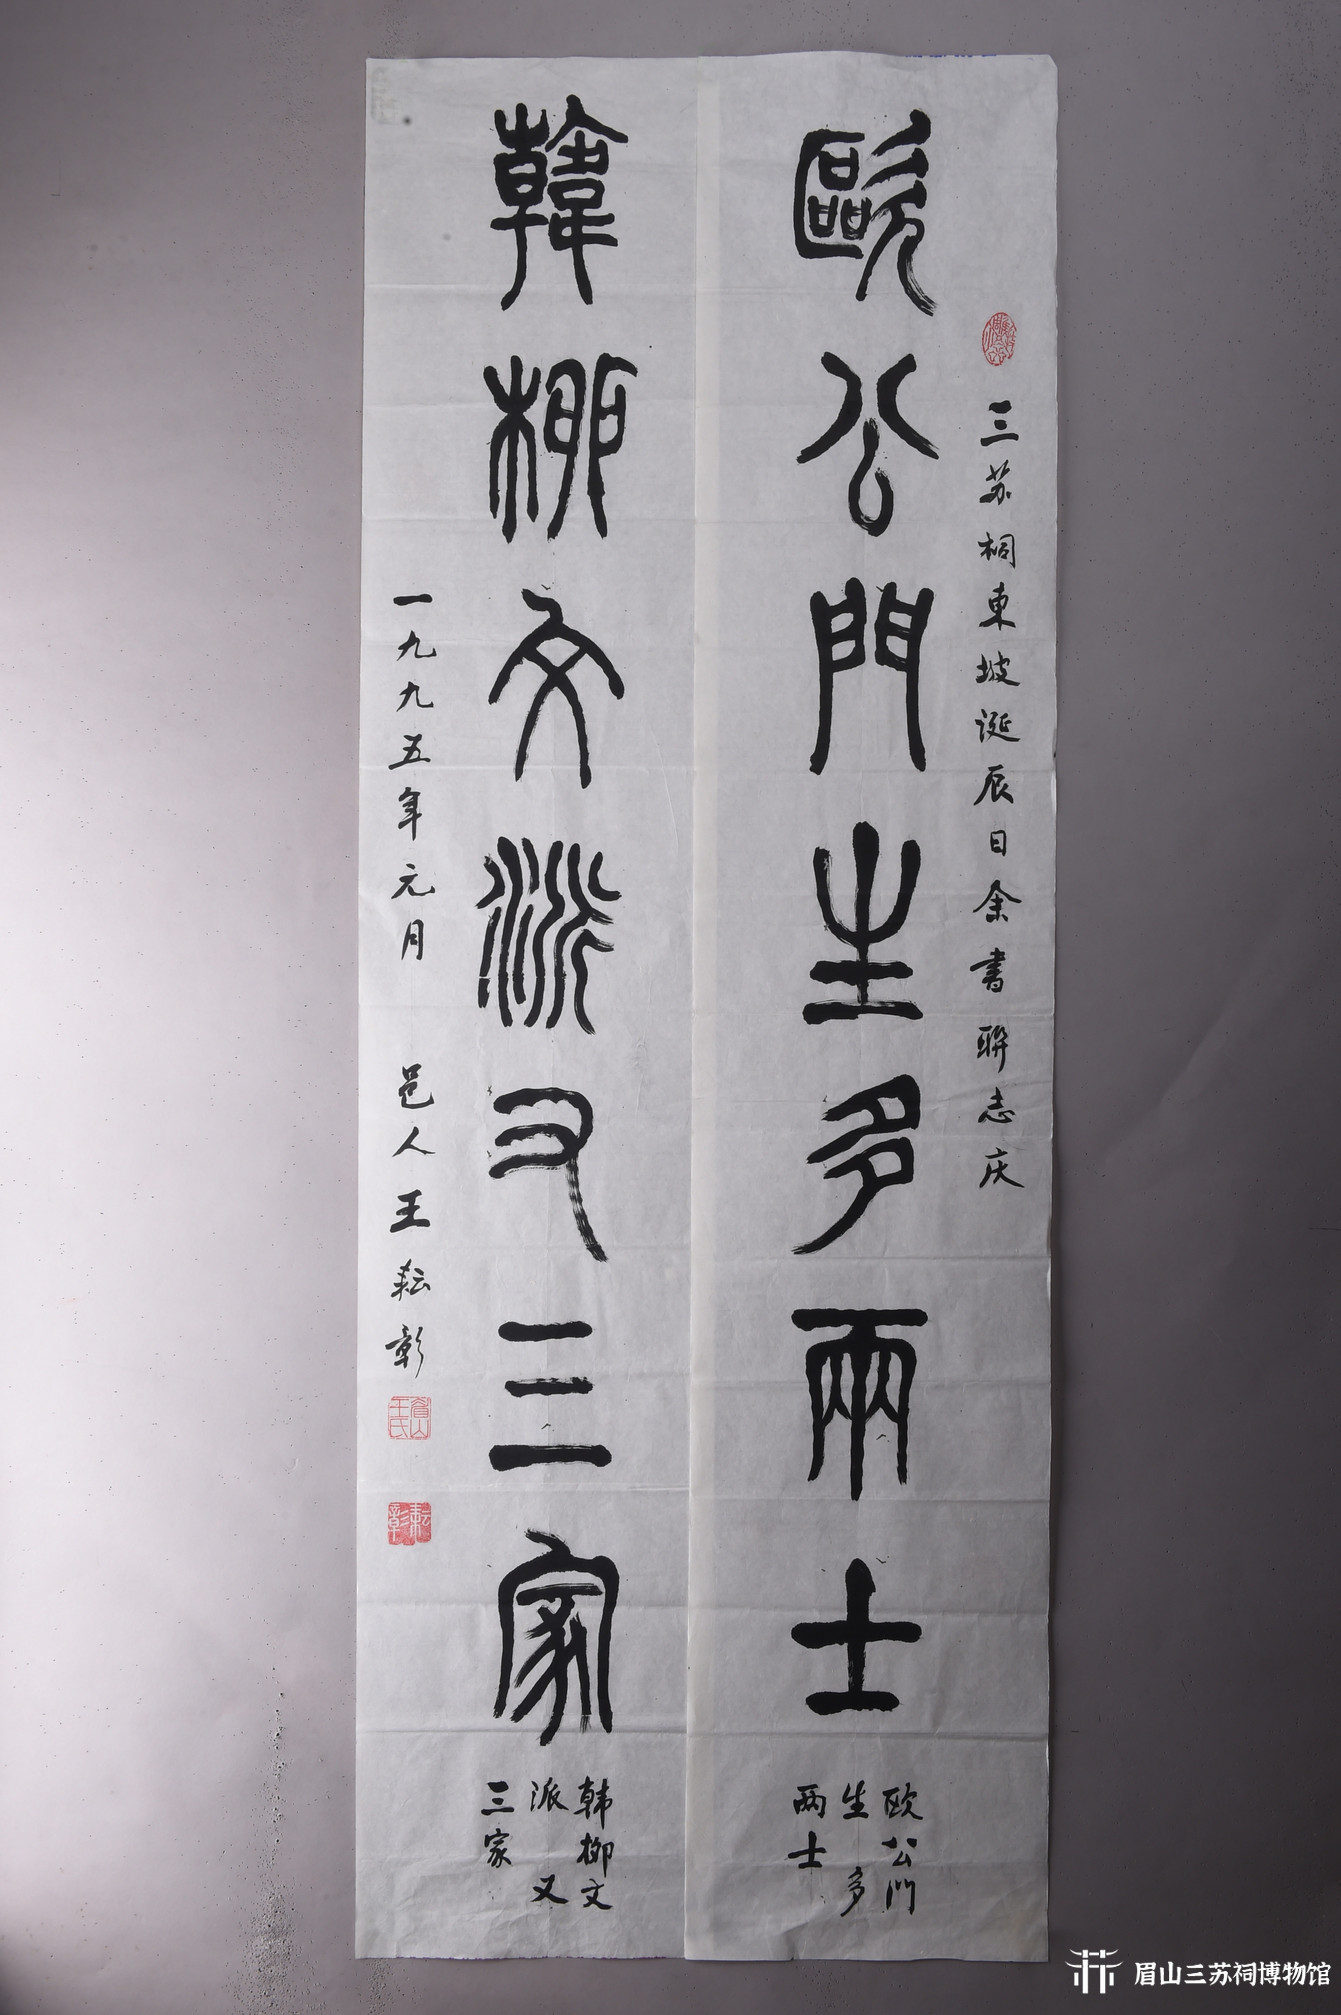 三苏祠东坡诞辰日余书联志庆
歐公門生多兩士
欧公门
生多
两士
韓柳文派又三家
韩柳文
派又
三家
一九九五年元月 邑人王耘彰
眉山王氏
耘彰
眉山三苏祠博物馆